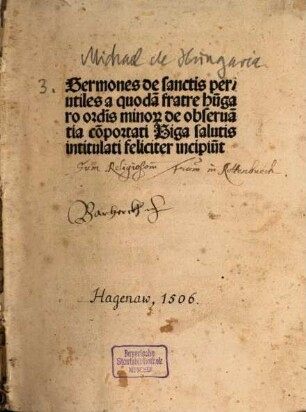 Michael de Hungaria
3.
Sermones de sanctis per⸗
utiles a quodā fratre hūga
ro ordīs minorꝝ de obseruā
tia cōportati Biga salutis
intitulati feliciter incipiūt
Sum Religiosorum Fratrum in Rottenbuech
Hagenaw, 1506.
Bayerische
Staatsbibliothek
MÜNCHEN